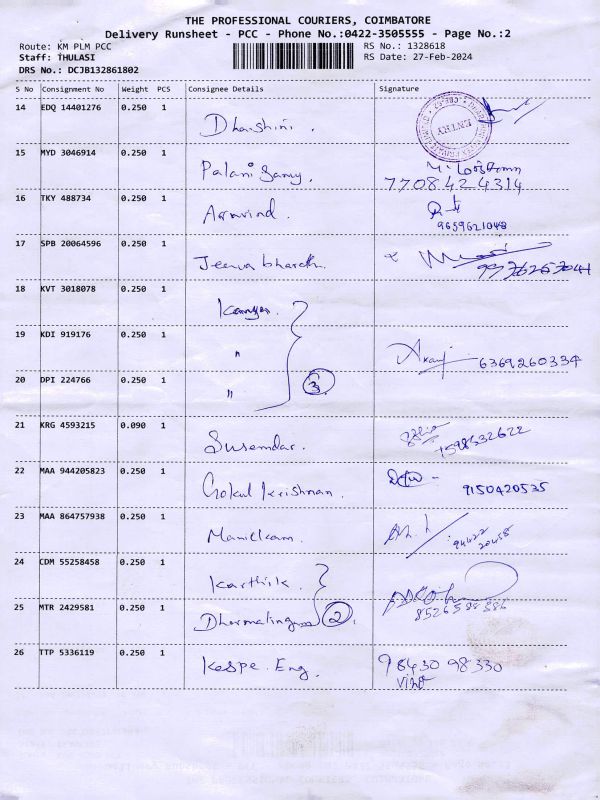 THE PROFESSIONAL COURIERS, COIMBATORE
Delivery Runsheet - PCC - Phone No.:0422-3505555 - Page No.:2
Route: KM PLM PCC RS No.: 1328618
Staff: THULASI RS Date: 27-Feb-2024
DRS No.: DCJB132861802
S No Consignment No Weight PCS Consignee Details Signature
14 EDQ 14401276 0.250 1
Dharshini.
ENTRY
15 MYD 3046914 0.250 1
Palani Samy.
7708424314
16 TKY 488734 0.250 1
Aravind.
9659621048
17 SPB 20064596 0.250 1
Jeeva bharath.
18 KVT 3018078 0.250 1
Kanya.
19 KDI 919176 0.250 1
" 6369260334
20 DPI 224766 0.250 1
" 3
21 KRG 4593215 0.090 1
Surendar.
7598532622
22 MAA 944205823 0.250 1
Gokul krishnan. 9150420535
23 MAA 864757938 0.250 1
Manickam. 94422
20458
24 CDM 55258458 0.250 1
Karthik.
25 MTR 2429581 0.250 1
Dharmalingam 2
26 TTP 5336119 0.250 1
Kaspe. Eng. 98430 98330